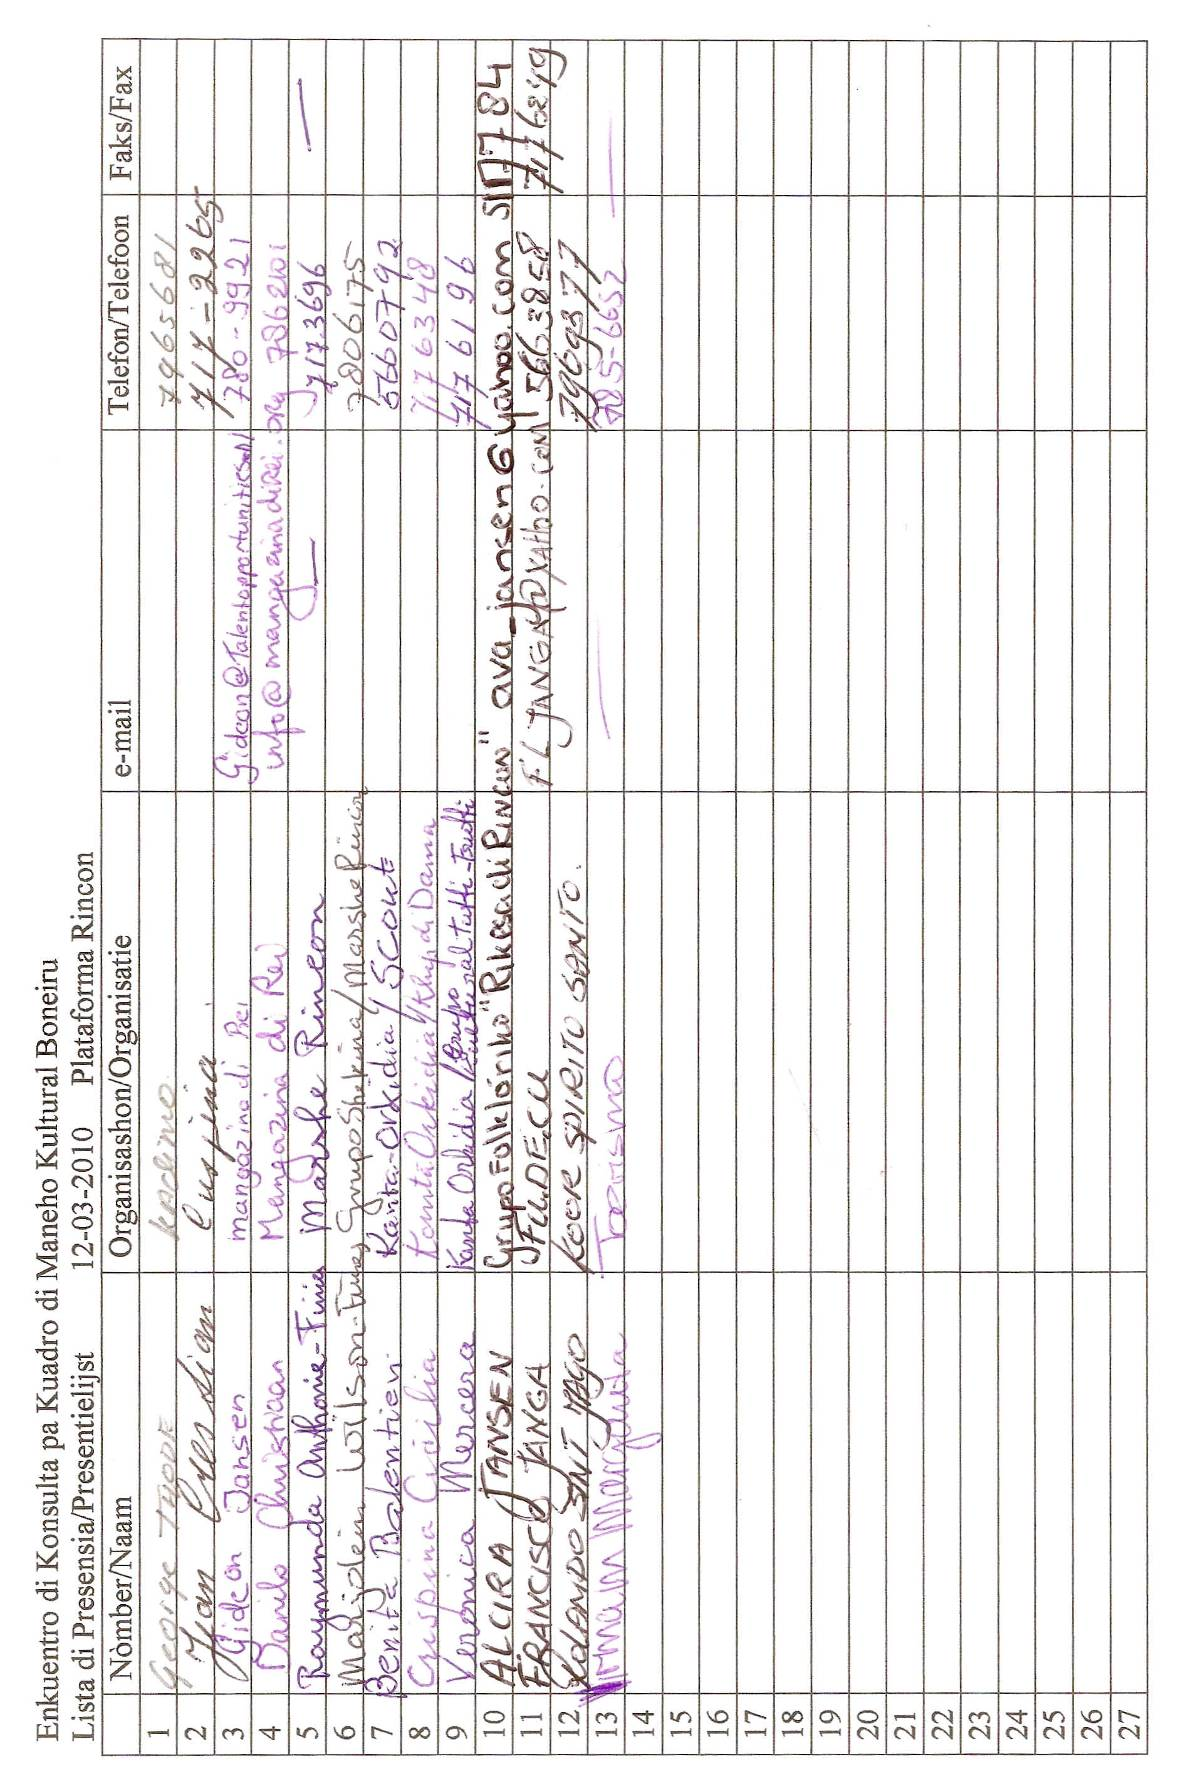 Enkuentro di Konsulta pa Kuadro di Maneho Kultural Boneiru
Lista di Presensia/Presentielijst 12-03-2010 Plataforma Rincon
Nòmber/Naam Organisashon/Organisatie e-mail Telefon/Telefoon Faks/Fax
1 George THODE KADIMO 7965681
2 Jean Cuspina 717-2265
3 Gideon Jansen mangazina di Rei Gideon@Talentopportunities 780-9921
4 Danilo Christiaan Mangazina di Rei info@mangazinadirei.org 7862101
5 Raymunda Anthonie-Finies Marshe Rincon — 7173696 —
6 Marjolein Wilson-Finies Grupo Shekina/Marshe Rincon 7806175
7 Benita Balentien Kanta-Orkidia/Scout 5660792
8 Crispina Cicilia Kanta Orkidia/Khp di Dama 7176348
9 Veronica Mercera Kanta Orkidia/Grupo Kultural Tutti-Frutti 7176196
10 ALCIRA JANSEN Grupo Folklóriko "Rikesa di Rincon" ava_jansen@yahoo.com 5117784
11 FRANCISCO JANGA FUNDECU FLJANGA@YAHOO.COM 566-3858 7176249
12 ROLANDO SINT JAGO KOOR SPIRITO SANTO. 7969377
13 Margarita Torismo — 785-6652 —
14
15
16
17
18
19
20
21
22
23
24
25
26
27